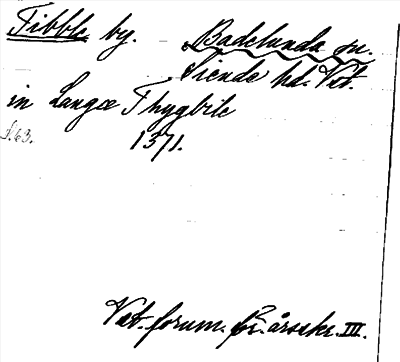 Fibble by. Badelunda sn.
Siende hd. Vst.
in Langæ Thygbile
S. 63. 1371.
Vst. forum. för. årsskr. III.